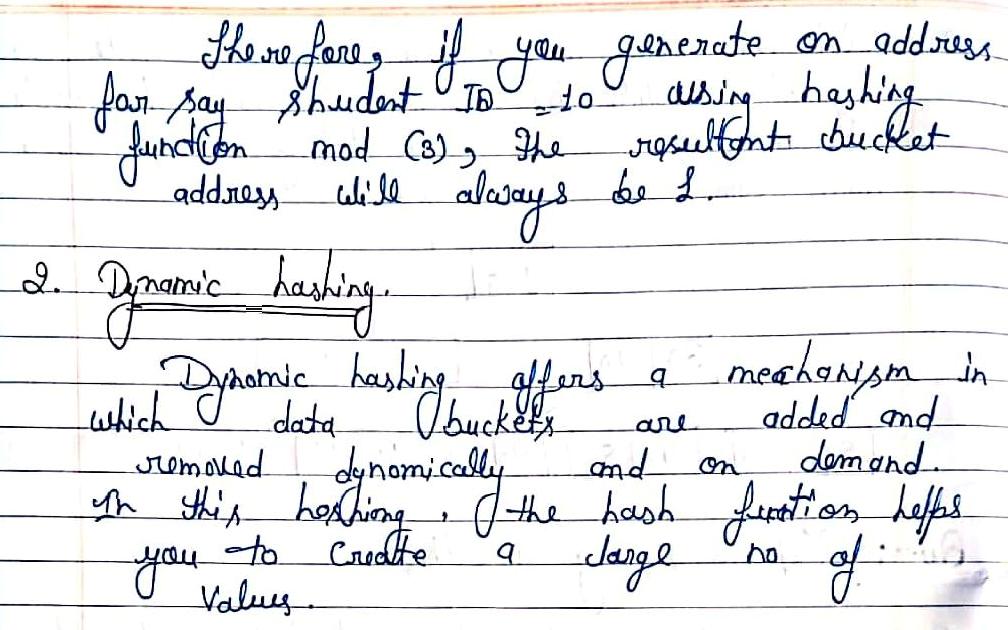 Therefore, if you generate an address
for say student ID = 10 using hashing
function mod (3), The resultant bucket
address will always be 1.
2. Dynamic hashing.
Dynamic hashing offers a mechanism in
which data buckets are added and
removed dynamically and on demand.
In this hashiong, the hash funtion helps
you to Create a large no of
Values.